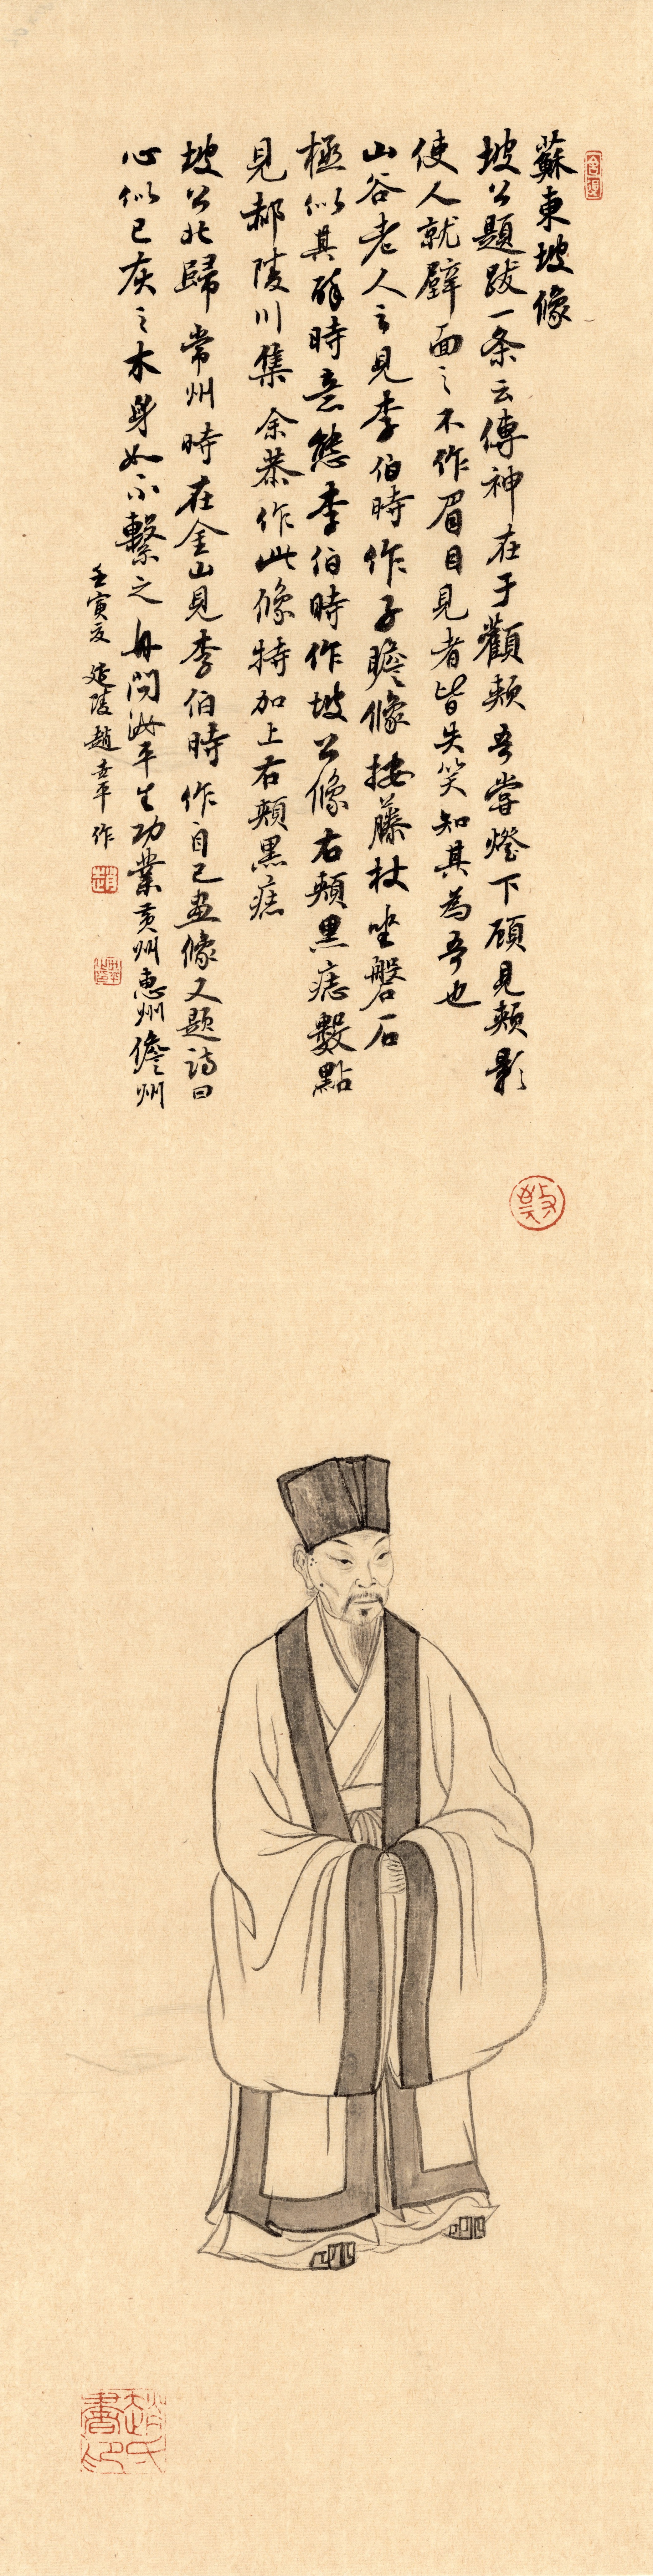 蘇東坡像
坡公題跋一条云傳神在于顴頰吾嘗燈下顧見頰影
使人就壁画之不作眉目見者皆失笑知其為吾也
山谷老人云見李伯時作子瞻像按藤杖坐磐石
極似其醉時意態李伯時作坡公像右頰黑痣數點
見郝陵川集余恭作此像特加上右頰黑痣
坡公北歸常州時在金山見李伯時作自己画像又题詩曰
心似已灰之木身如不繫之舟問汝平生功業黄州惠州儋州
壬寅夏延陵趙平作
趙氏書印